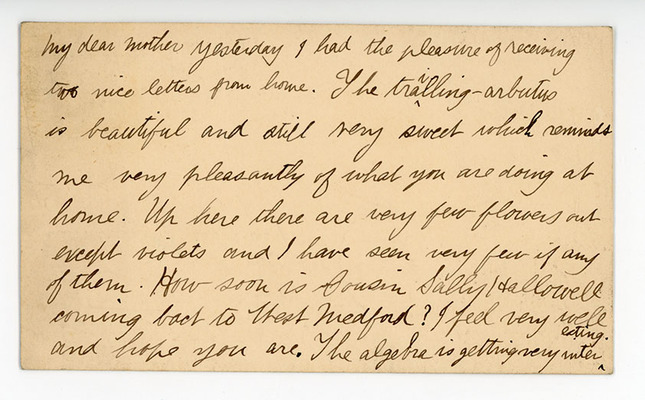 My dear mother yesterday I had the pleasure of receiving
two nice letters from home. The trailling-arbutus
is beautiful and still very sweet which reminds
me very pleasantly of what you are doing at
home. Up here there are very few flowers out
except violets and I have seen very few if any
of them. How soon is Cousin Sally Hallowell
coming back to West Medford? I feel very well
and hope you are. The algebra is getting very inter^esting.